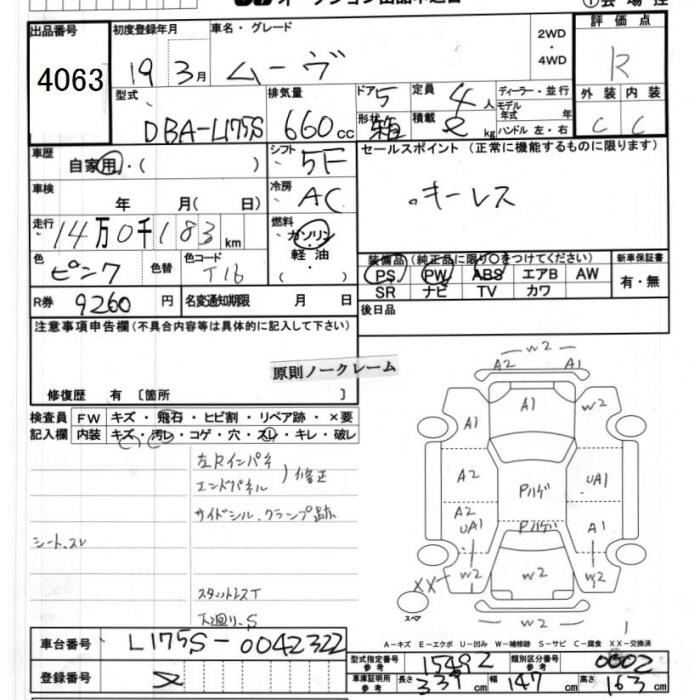 オークション出品申込書 ①会場控
出品番号 4063
初度登録年月 19年 3月
車名・グレード ムーヴ
2WD・4WD
評価点 R
型式 DBA-L175S
排気量 660cc
ドア 5 形状 箱
定員 4人 積載 kg
ディーラー・並行
モデル年式 年
ハンドル 左・右
外装 C 内装 C
車歴 自家用・( )
シフト 5F
セールスポイント (正常に機能するものに限ります)
。キーレス
車検 年 月( 日)
冷房 AC
走行 14万0千183km
燃料 ガソリン・軽油・( )
色 ピンク 色替 色コード T16
装備品 (純正品に限り○をつけてください) 新車保証書
PS PW ABS エアB AW 有・無
SR ナビ TV カワ
R券 9260円 名変通知期限 月 日
後日品
注意事項申告欄 (不具合内容等は具体的に記入して下さい)
原則ノークレーム
修復歴 有 〔箇所 〕
検査員 FW キズ・飛石・ヒビ割・リペア跡・×要
記入欄 内装 キズ・汚レ・コゲ・穴・スレ・キレ・破レ
左Rインパネ
エンドパネル 修正
サイドシル、クランプ跡
シート、スレ
下廻り、S
W2
A2 A1
A1 A1 W2
A2 Pハゲ UA1
A2 UA1 Pハゲ A1
XX W2 W2 W2
スペア W2
A－キズ E－エクボ U－凹み W－補修跡 S－サビ C－腐食 XX－交換済
車台番号 L175S-0042322
型式指定番号 参考 15492 類別区分番号 参考 0002
登録番号
車庫証明用 参考 長さ 339cm 幅 147cm 高さ 163cm